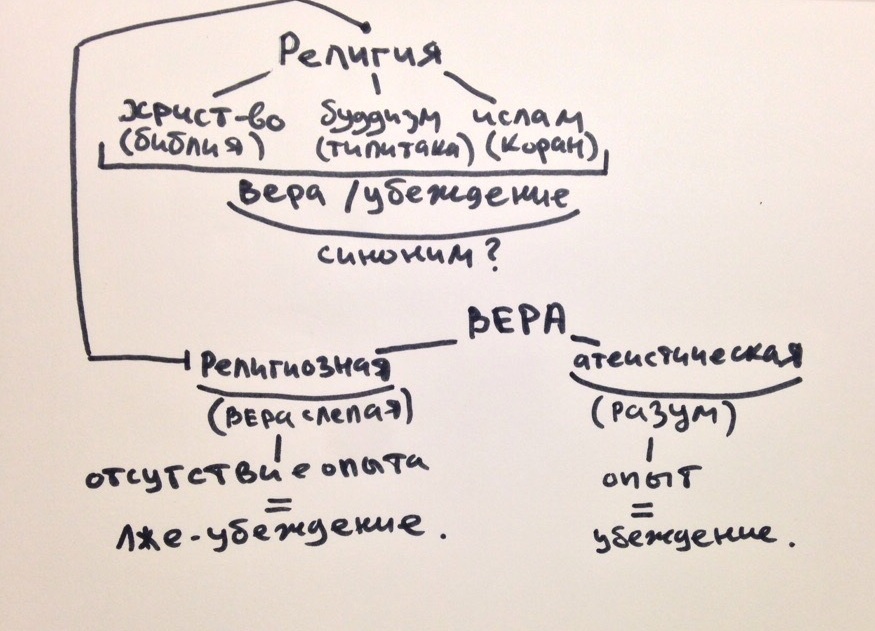 Религия
христ-во буддизм ислам
(библия) (типитака) (Коран)
Вера / убеждение
синоним?
ВЕРА
Религиозная атеистическая
(ВЕРА слепая) (РАЗУМ)
отсутствие опыта опыт
= =
лже-убеждение. убеждение.